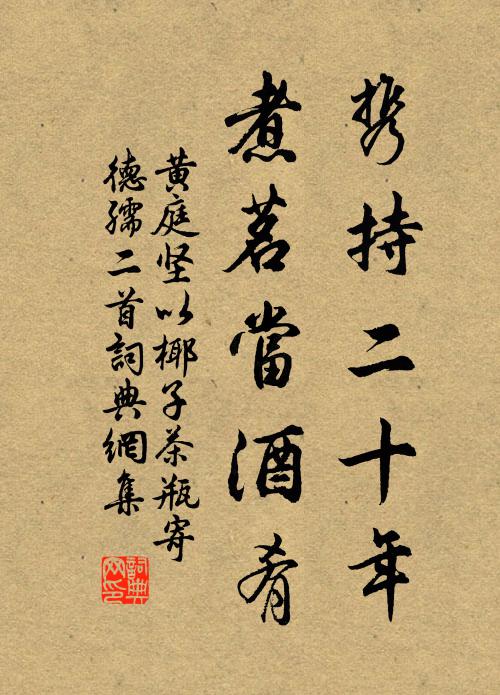 携持二十年
煮茗當酒肴
黄庭坚以椰子茶瓶寄
德孺二首詞典網集
詞典
网印